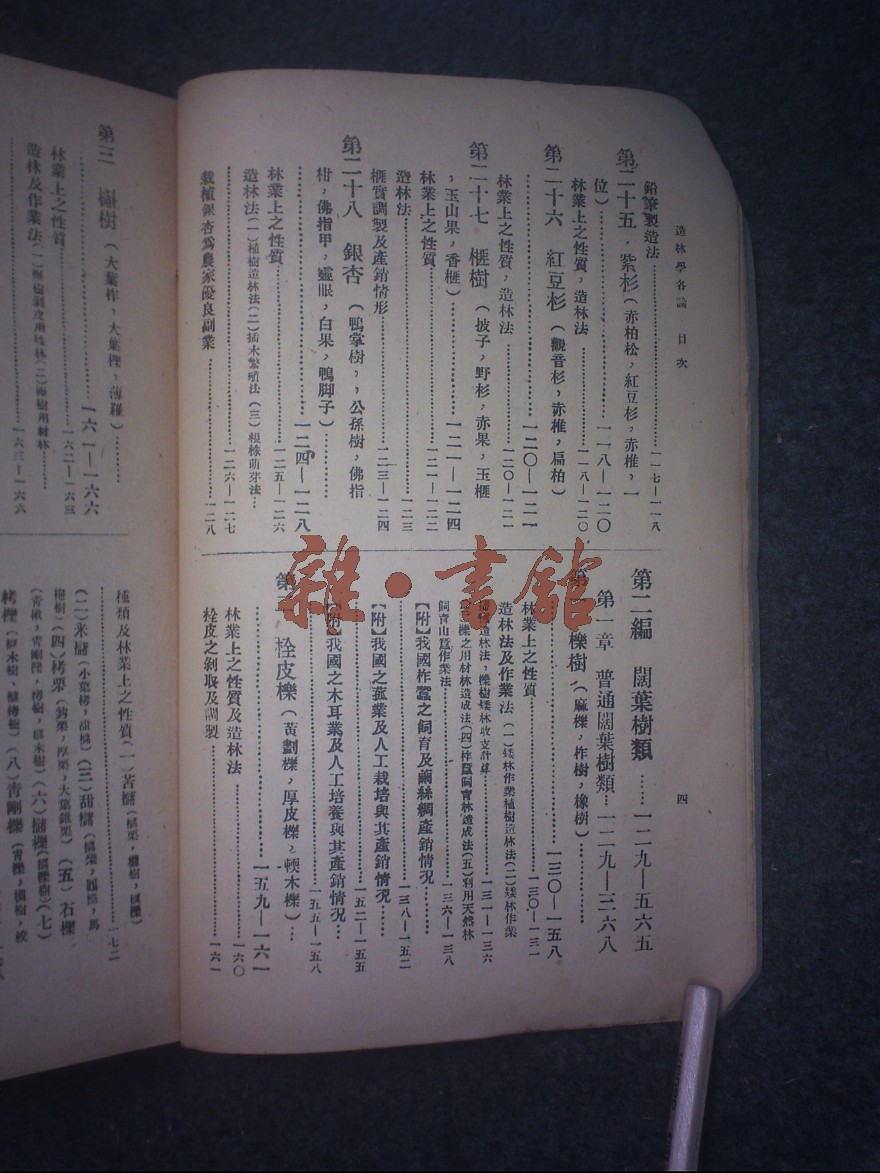 造林學各論　目次
四
鉛筆製造法……一一七—一一八
第二十五．紫杉（赤柏松，紅豆杉，赤椎，一
位）……一一八—一二〇
林業上之性質，造林法……一一八—一二〇
第二十六　紅豆杉（觀音杉，赤椎，扁柏）
……一二〇—一二一
林業上之性質，造林法……一二〇—一二一
第二十七　榧樹（披子，野杉，赤果，玉榧
，玉山果，香榧）……一二一—一二四
林業上之性質……一二一—一二二
造林法……一二三
榧實調製及產銷情形……一二三—一二四
第二十八　銀杏（鴨掌樹，，公孫樹，佛指
柑，佛指甲，靈眼，白果，鴨脚子）……
……一二四—一二八
林業上之性質……一二五—一二六
造林法（一）植樹造林法（二）插木繁殖法（三）根株萌芽法…
……一二六—一二七
栽植銀杏爲農家優良副業……一二八
第二編　闊葉樹類……一二九—五六五
第一章　普通闊葉樹類…一二九—三六八
第一　櫟樹（麻櫟，柞樹，橡樹）……
……一三〇—一五八
林業上之性質……一三〇—一三一
造林法及作業法（一）矮林作業植樹造林法（二）矮林作業
造林法，櫟樹矮林收支計算……一三一—一三六
櫟之用材林造成法（四）柞蠶飼育林造成法（五）利用天然林
飼育山蠶作業法……一三六—一三八
【附】我國柞蠶之飼育及繭絲綢產銷情況……
……一三八—一五二
【附】我國之菰業及人工栽培與其產銷情況……
……一五二—一五五
【附】我國之木耳業及人工培養與其產銷情况……
……一五五—一五八
第二　栓皮櫟（黃劃櫟，厚皮櫟，輭木櫟）…
……一五九—一六一
林業上之性質及造林法……一六〇
栓皮之剝取及調製……一六一
第三　槲樹（大葉柞，大葉櫟，薄羅）……
……一六一—一六六
林業上之性質……一六二—一六三
造林及作業法（一）槲樹剝皮用矮林（二）槲樹用材林……
……一六三—一六六
種類及林業上之性質（一）苦櫧
……一七二
（二）米櫧（三）甜櫧
（四）栲栗（鈎栗，厚栗，大葉錐栗）（五）石櫟
（六）櫧櫟（七）
栲櫟（八）靑剛櫟